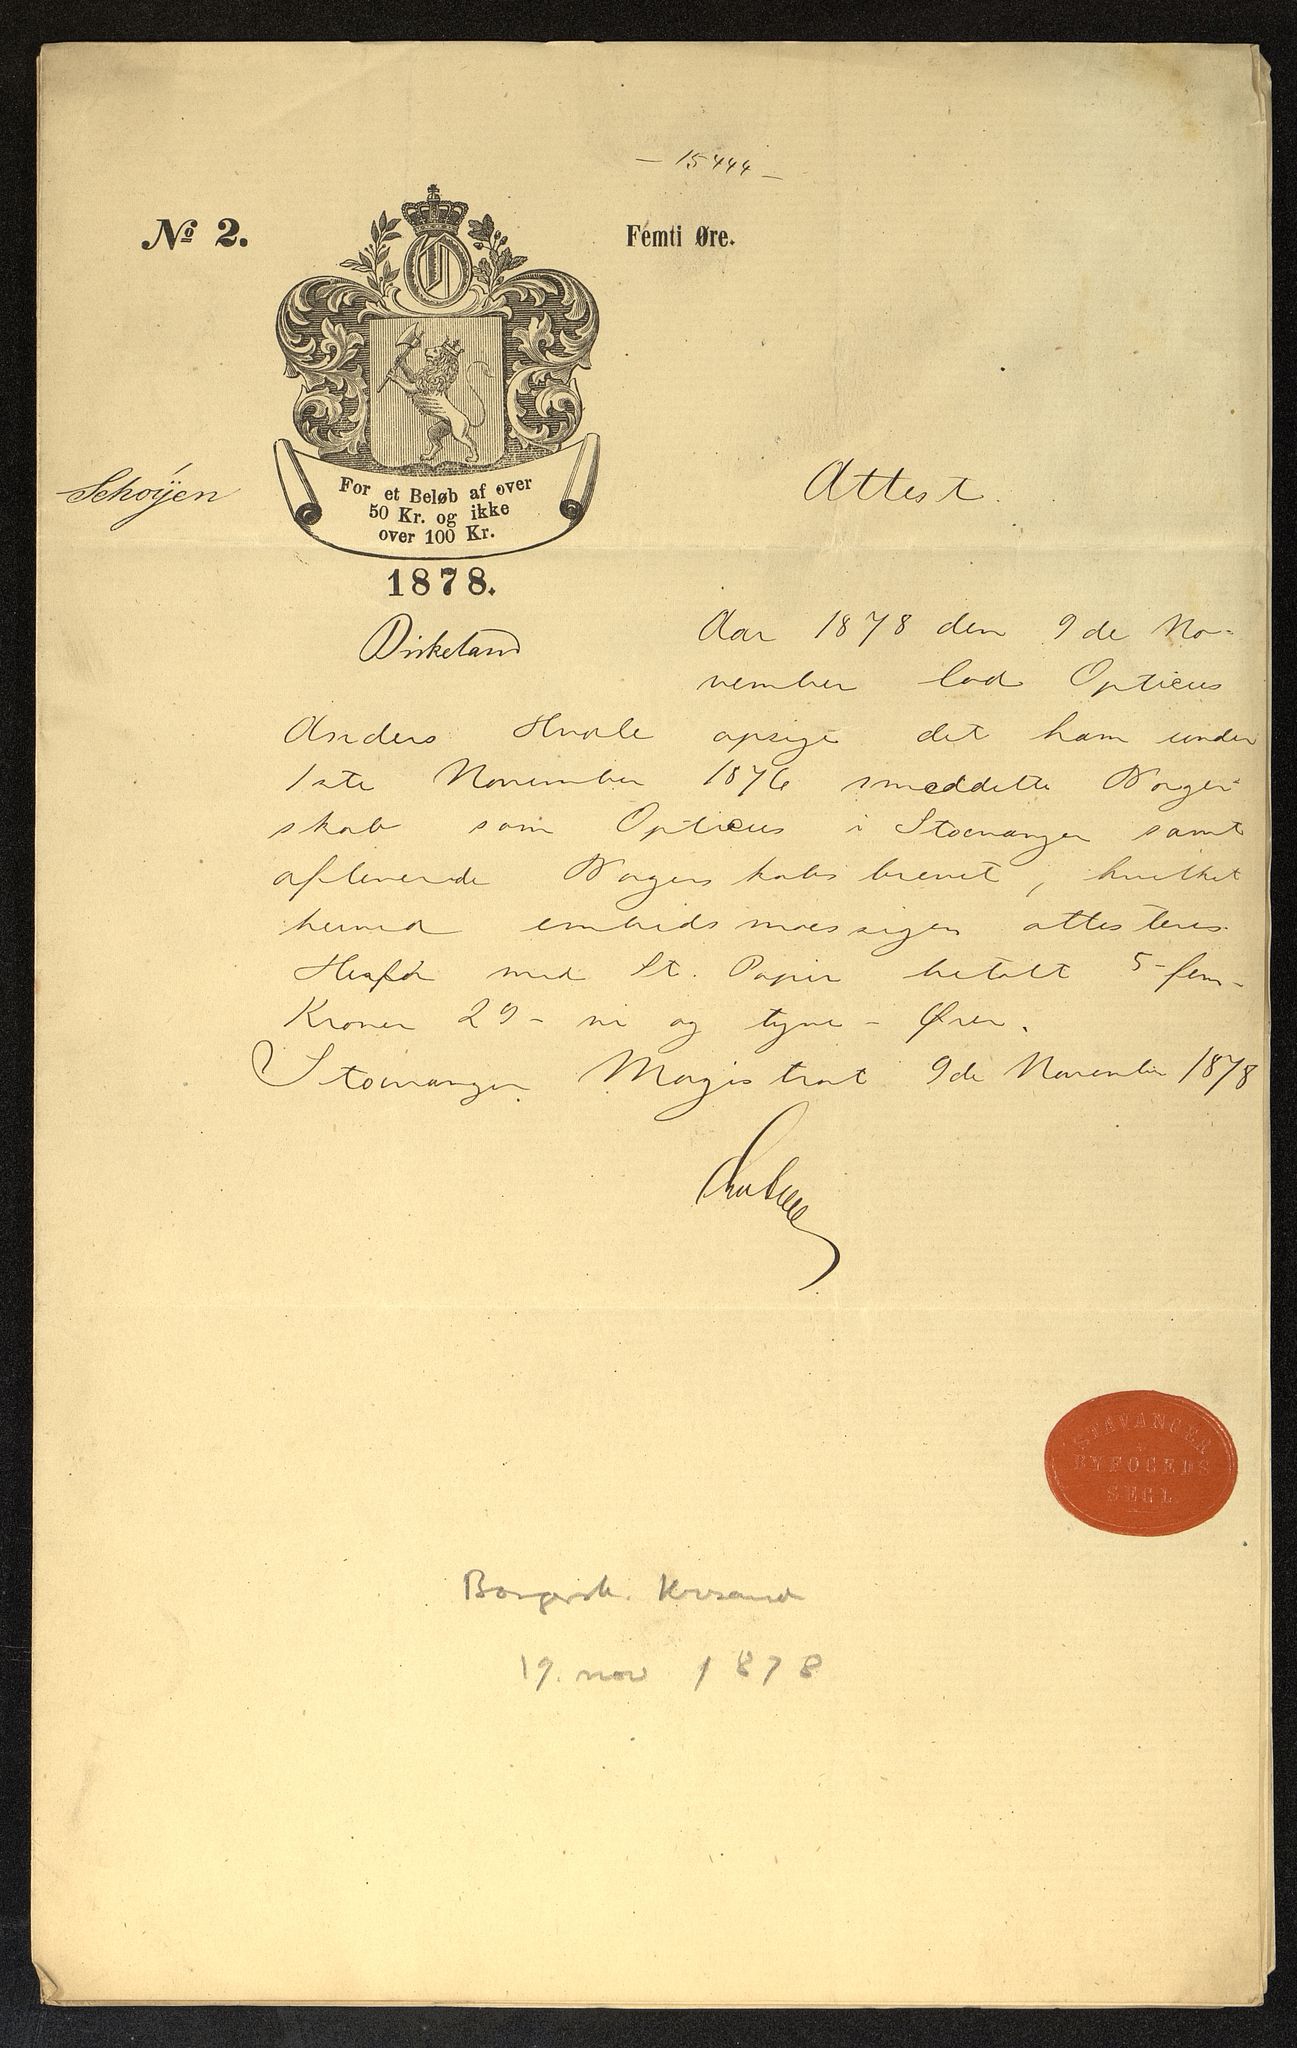 - 15444 -
No 2.
Femti Øre.
For et Beløb af over
50 Kr. og ikke
over 100 Kr.
1878.
Schoÿen
Birkeland
Attest.
Aar 1878 den 9de No-
vember lod Opticus
Anders Hvale opsige det ham under
1ste November 1876 meddelte Borger-
skab som Opticus i Stavanger samt
afleverede Borgerskabsbrevet, hvilket
herved embedsmæssigen attesteres.
Herfor med St. Papir betalt 5 - fem -
Kroner 29 - ni og tyve - Ører.
Stavanger Magistrat 9de November 1878
STAVANGER
BYFOGEDS
SEGL
Borgersk. Krsand
19. nov 1878